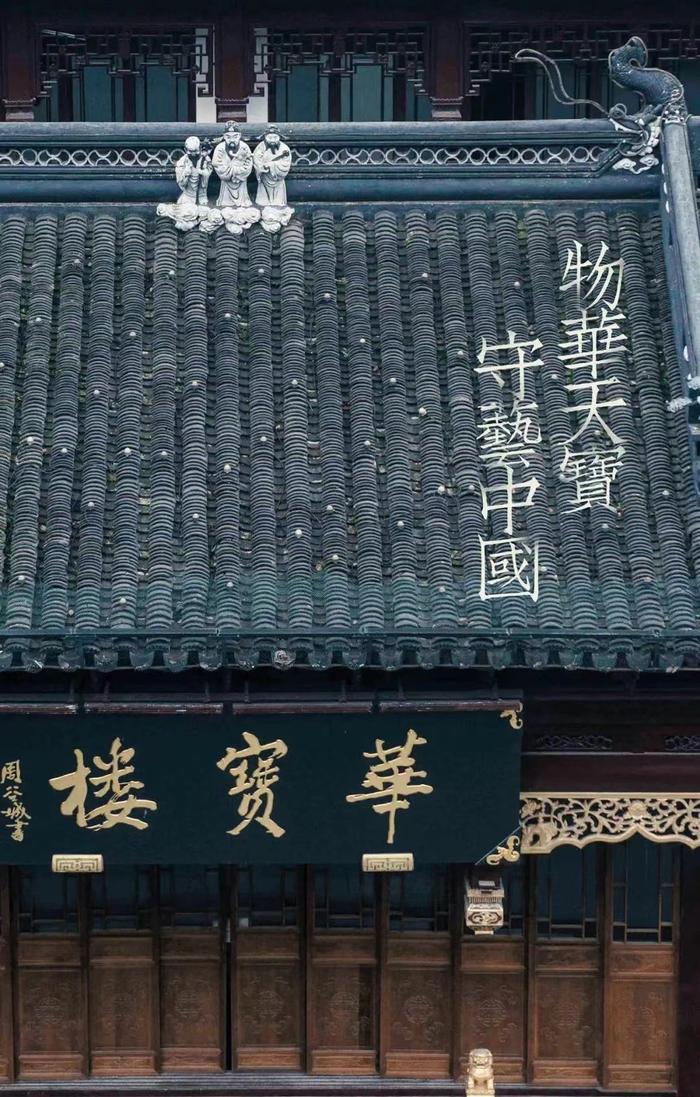 物華天寶
守藝中國
華寶樓
周谷城書